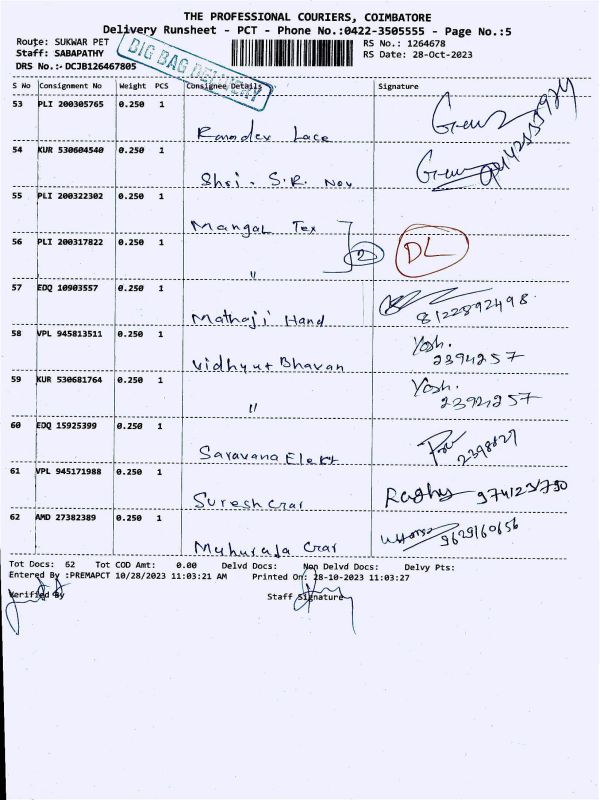 THE PROFESSIONAL COURIERS, COIMBATORE
Delivery Runsheet - PCT - Phone No.:0422-3505555 - Page No.:5
Route: SUKWAR PET RS No.: 1264678
Staff: SABAPATHY RS Date: 28-Oct-2023
DRS No.:- DCJB126467805
BIG BAG DELIVERY
S No Consignment No Weight PCS Consignee Details Signature
53 PLI 200305765 0.250 1
Ramdev Lace
54 KUR 530604540 0.250 1
Shri. S.R. Nov
55 PLI 200322302 0.250 1
Mangal Tex
56 PLI 200317822 0.250 1
" 2 DL
57 EDQ 10903557 0.250 1
Mathaji Hand 8122592498
58 VPL 945813511 0.250 1 Yosh.
Vidhyut Bhavan 2394257
59 KUR 530681764 0.250 1 Yosh.
" 2394257
60 EDQ 15925399 0.250 1
Saravana Elekt 2398827
61 VPL 945171988 0.250 1
Suresh Crar Raghu
62 AMD 27382389 0.250 1
Muhuraja Crar 9629160656
Tot Docs: 62 Tot COD Amt: 0.00 Delvd Docs: Non Delvd Docs: Delvy Pts:
Entered By :PREMAPCT 10/28/2023 11:03:21 AM Printed On: 28-10-2023 11:03:27
Verified By Staff Signature